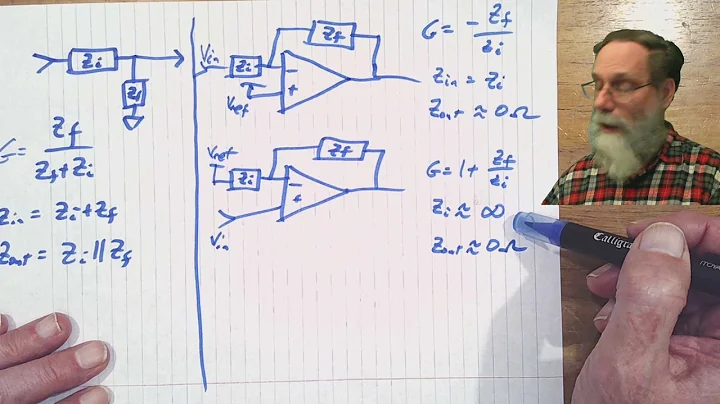 Zi
Zf
G = Zf / Zf+Zi
Zin = Zi+Zf
Zout = Zi || Zf
Vin
Zi
Zf
-
+
Vref
G = - Zf / Zi
Zin = Zi
Zout ≈ 0Ω
Vref
Zi
Zf
-
+
Vin
G = 1 + Zf / Zi
Zi ≈ ∞
Zout ≈ 0Ω
Calligra